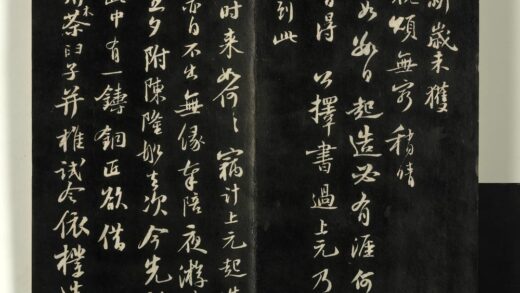 新歲未獲
祝頌無窮稍晴
如數日起造必有涯何
日得公擇書過上元乃
到此
時来如何〻竊計上元起造
亦自不出無緣奉陪夜游
旦夕附陳隆船去次今先
此中有一鑄銅匠欲借
州木茶臼子并椎試令依樣造